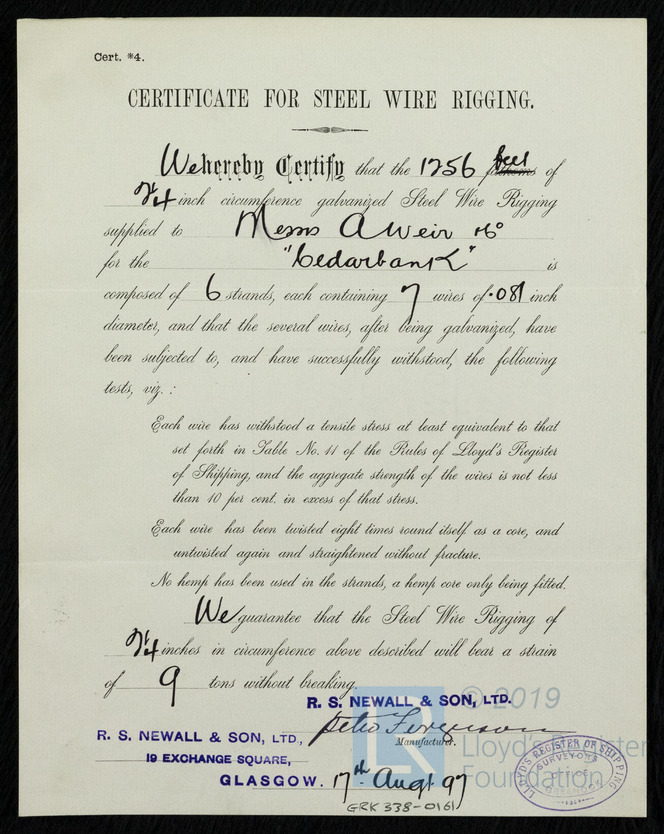 Cert. *4.
CERTIFICATE FOR STEEL WIRE RIGGING.
We hereby Certify that the 1256 feet fathoms of
2 1/4 inch circumference galvanized Steel Wire Rigging
supplied to Messrs A Weir & Co
for the "Cedarbank" is
composed of 6 strands, each containing 7 wires of .081 inch
diameter, and that the several wires, after being galvanized, have
been subjected to, and have successfully withstood, the following
tests, viz. :
Each wire has withstood a tensile stress at least equivalent to that
set forth in Table No. 11 of the Rules of Lloyd's Register
of Shipping, and the aggregate strength of the wires is not less
than 10 per cent. in excess of that stress.
Each wire has been twisted eight times round itself as a core, and
untwisted again and straightened without fracture.
No hemp has been used in the strands, a hemp core only being fitted.
We guarantee that the Steel Wire Rigging of
2 1/4 inches in circumference above described will bear a strain
of 9 tons without breaking.
R. S. NEWALL & SON, LTD.
Peter Ferguson
Manufacturer.
R. S. NEWALL & SON, LTD.,
19 EXCHANGE SQUARE,
GLASGOW. 17th Augt 97
GRK 338-0161
LLOYD'S REGISTER OF SHIPPING
SURVEYORS
OFFICE
GREENOCK
LR
© 2019
Lloyd's Register
Foundation